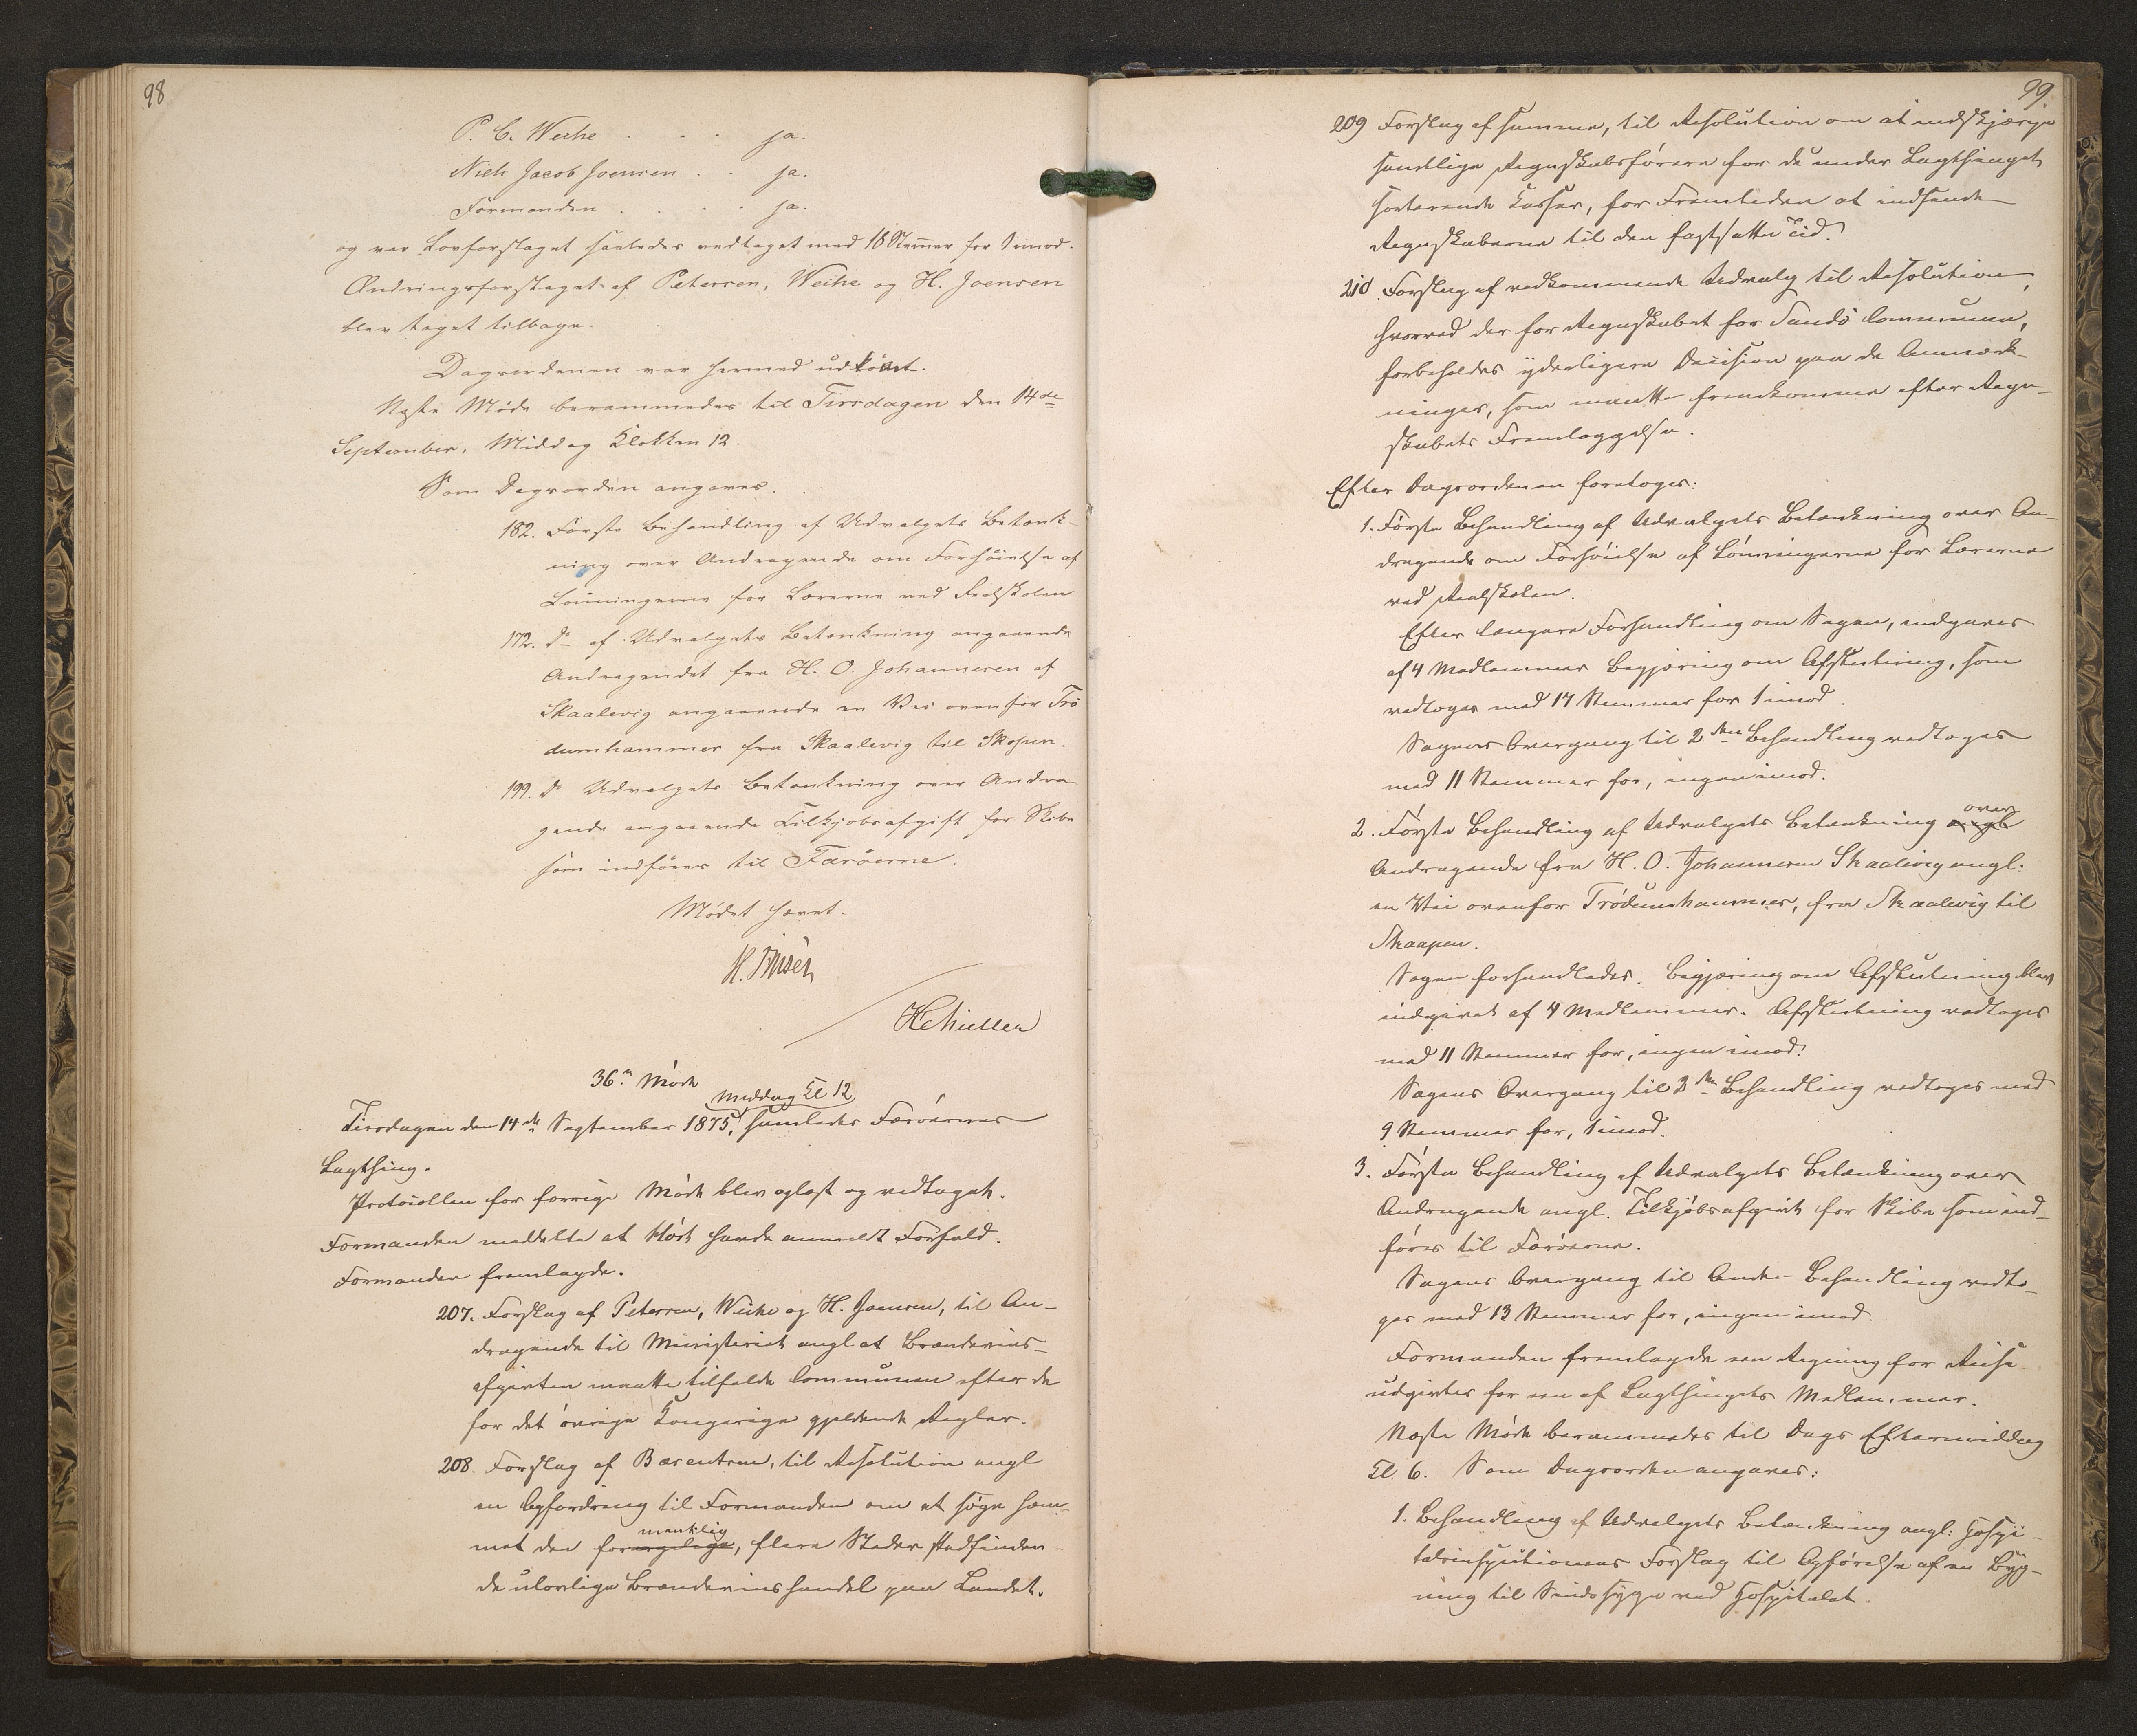 98
P. C. Weihe . . . ja.
Niels Jacob Joensen . . ja.
Formanden . . . . ja.
og var Lovforslaget saaledes vedtaget med 18 Stemmer for 5 imod.
Ændringsforslaget af Petersen, Weihe og H. Joensen
blev taget tilbage.
Dagsordenen var hermed udtömt.
Næste Möde berammedes til Tirsdagen den 14de
September, Middag Klokken 12.
Som Dagsorden angaves.
182. Förste Behandling af Udvalgets Betænk-
ning over Andragende om Forhöielse af
Lönningerne for Lærerne ved Realskolen
172. Do af Udvalgets Betænkning angaaende
Andragendet fra H. O. Johannesen af
Skaalevig angaaende en Vei ovenfor Trö
dumhammer fra Skaalevig til Skopen.
199. Do Udvalgets Betænkning over Andra
gende angaaende Tilkjöbsafgift for Skibe
som indföres til Færöerne.
Mödet hævet.
H. Finsen
36te Möde
Middag Kl 12
Tirsdagen den 14de September 1875, samledes Færöernes
Lagthing.
Protocollen for forrige Möde blev oplæst og vedtaget.
Formanden meddelte at havde anmeldt Forfald.
Formanden fremlagde.
207. Forslag af Petersen, Weihe og H. Joensen, til An-
dragende til Ministeriet angl at Brændeviins-
afgiften maatte tilfalde Communen efter de
for det övrige Kongerige gjeldende Regler.
208. Forslag af Bærentsen, til Resolution angl
en Opfordring til Formanden om at söge hæm-
met den formentlig, flere Steder stedfinden-
de ulovlige Brændeviinshandel paa Landet.
99.
209 Forslag af samme, til Resolution om at indskjærpe
samtlige Regnskabsförere for de under Lagthinget
sorterende Kasser, for Fremtiden at indsende
Regnskaberne til den fastsatte Tid.
210. Forslag af vedkommende Udvalg til Resolution,
hvorved der for Regnskabet for Sandö Commune,
forbeholdes yderligere Decision paa de Anmærk-
ninger, som maatte fremkomme efter Regn-
skabets Fremlæggelse.
Efter Dagsordenen foretoges:
1. Förste Behandling af Udvalgets Betænkning over An-
dragende om Forhöielse af Lönningerne for Lærerne
ved Realskolen.
Efter længere Forhandling om Sagen, indgaves
af 4 Medlemmer Begjæring om Afslutning, som
vedtoges med 14 Stemmer for 1 imod.
Sagens Overgang til 2den Behandling vedtoges
med 11 Stemmer for, ingen imod.
2. Förste Behandling af Udvalgets Betænkning angl over
Andragende fra H. O. Johannesen Skaalevig angl:
en Vei ovenfor Trödumhammer, fra Skaalevig til
Skaapen.
Sagen forhandledes. Begjæring om Afslutning blev
indgivet af 4 Medlemmer. Afslutning vedtoges
med 11 Stemmer for, ingen imod.
Sagens Overgang til 2den Behandling vedtoges med
9 Stemmer for, 1 imod.
3. Förste Behandling af Udvalgets Betænkning over
Andragende angl. Tilkjöbsafgift for Skibe som ind-
föres til Færöerne.
Sagens Overgang til Anden Behandling vedto-
ges med 13 Stemmer for, ingen imod.
Formanden fremlagde en Regning for Reise-
udgifter for en af Lagthingets Medlemmer.
Næste Möde berammedes til Dags Eftermiddag
Kl. 6. Som Dagsorden angaves:
1. Behandling af Udvalgets Betænkning angl: Hospi-
talsinspectionens Forslag til Opförelse af en Byg-
ning til Sindssyge ved Hospitalet.